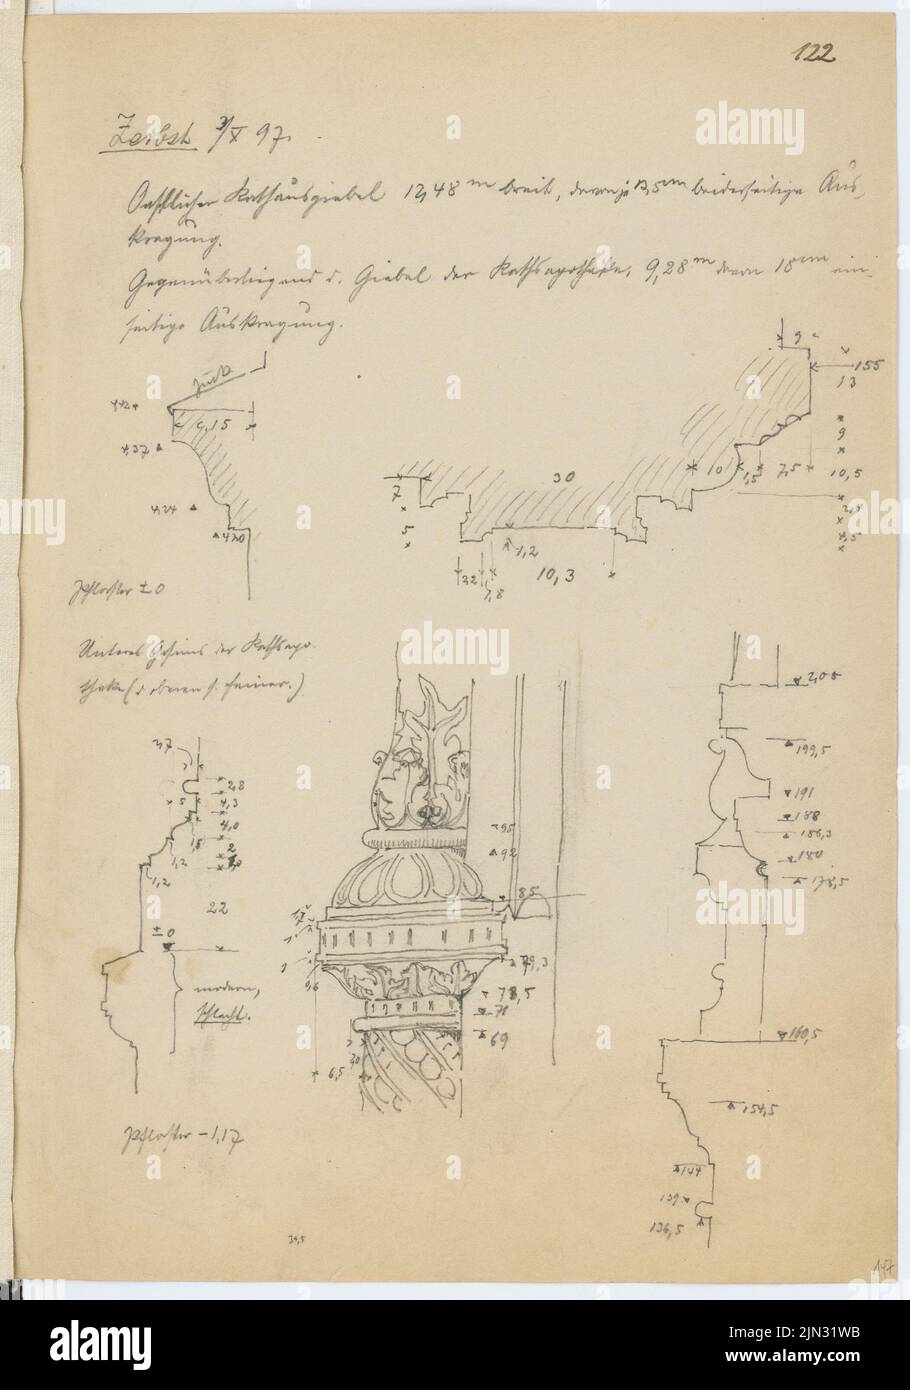 122
Zerbst 3/X 97.
Oestlicher Rathausgiebel 12,48 m breit, davon je 13,5 cm beiderseitige Aus-
kragung.
Gegenüberliegend d. Giebel der Rathsapotheke, 9,28 m davon 18 cm ein-
seitige Auskragung.
9
155
13
9
10,5
2,4
4,5
Zink
442
9,15
4,37
4,24
420
7
5
30
10
1,5
7,5
1,2
32
1,8
10,3
Pflaster ± 0
Unteres Gesims der Rathsapo-
theke (d. oberen s. ferner.)
3,7
2,8
5
4,3
4,0
1,5
2
1,2
1,2
22
± 0
modern,
schlecht.
Pflaster – 1,17
95
92
85
1,7
79,3
9,6
78,5
70
69
30
6,5
2,05
199,5
191
188
186,3
180
178,5
160,5
154,5
144
139
136,5
34,5
147
alamy
alamy
Image ID: 2JN31WB
www.alamy.com